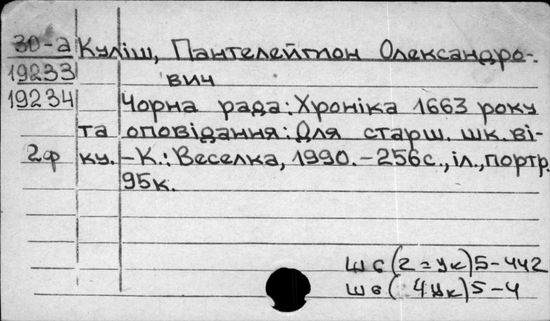 30-а Куліш, Пантелеймон Олександро-
19233 вич
19234 Чорна рада: Хроніка 1663 року
та оповідання: Для старш. шк. ві-
2ф ку. – К.: Веселка, 1990. – 256с., іл., портр.
95к.
ш6(2=Ук)5-442
ш6( 4Ук)5-4